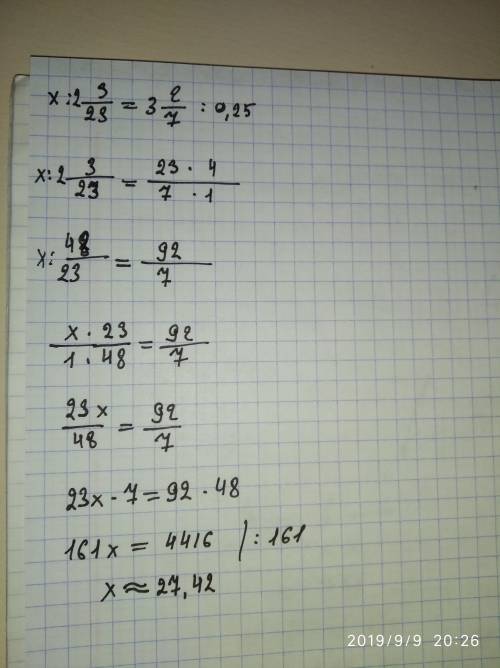 x : 2 3/23 = 3 2/7 : 0,25
x : 2 3/23 = 23 · 4 / 7 · 1
x : 48/23 = 92/7
x · 23 / 1 · 48 = 92/7
23x/48 = 92/7
23x · 7 = 92 · 48
161x = 4416 | : 161
x ≈ 27,42
2019/9/9 20:26